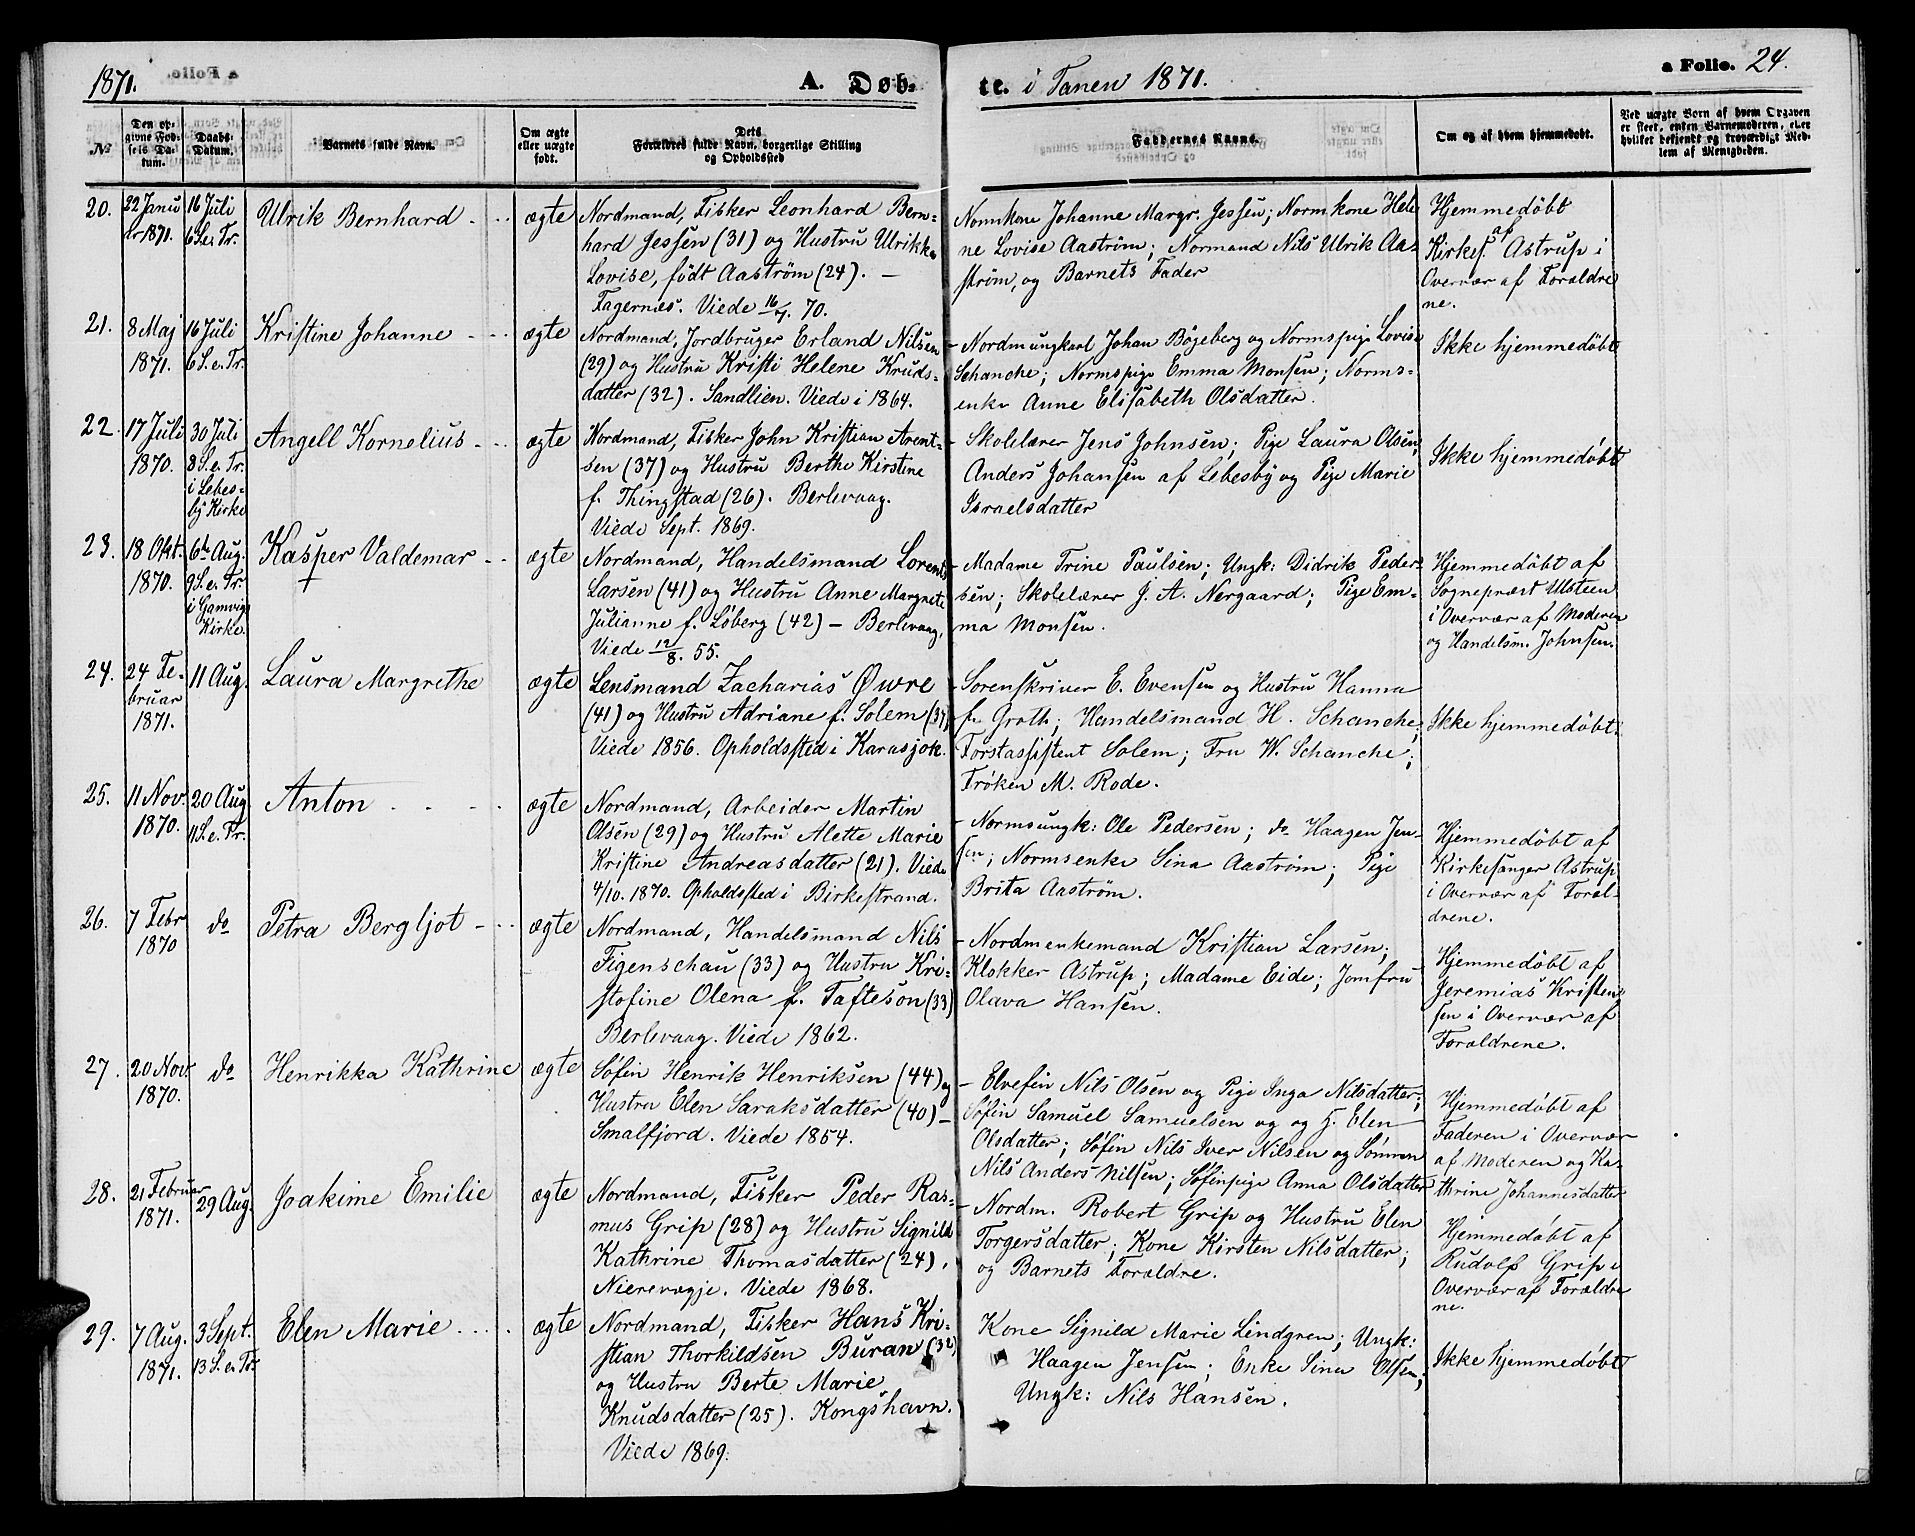 1871.
A. Døb-
te. i Tanen 1871.
a Folio. 24.
No
Den op-
givne Fød-
sels Da-
tum.
Daabs-
Datum.
Barnets fulde Navn.
Om ægte
eller uægte
født.
Dets
Forældres fulde Navn, borgerlige Stilling
og Opholdsted
Faddernes Navne.
Om og af hvem hjemmedøbt.
Ved uægte Børn af hvem Opgaven
er skeet, enten Barnemoderen, eller
hvilket bekjendt og troværdigt Med-
lem af Menigheden.
20.
22 Janu
ar 1871.
16 Juli
6 S. e. Tr.
Ulrik Bernhard
ægte
Nordmand, Fisker Leonhard Bern-
hard Jessen (31) og Hustru Ulrikke
Lovise, født Aaström (24). –
Fagernæs. Viede 16/7. 70.
Normkone Johanne Margr. Jessen; Normkone Hele
ne Lovise Aaström; Normand Nils Ulrik Aa-
ström, og Barnets Fader
Hjemmedöbt
af
Kirkes. Astrup i
Overvær af Foraldre
ne.
21.
8 Maj
1871.
16 Juli
6 S. e. Tr.
Kristine Johanne
ægte
Nordmand, Jordbruger Erland Nilsen
(29) og Hustru Kristi Helene Knuds-
datter (32). Sandlien. Viede i 1864.
– Nordmungkarl Johan Bögeberg og Normspige Lovise
Schanche; Normspige Emma Monsen; Norms-
enke Anne Elisabeth Olsdatter.
Ikke hjemmedöbt
22.
17 Juli
1870.
30 Juli
8 S. e. Tr.
i Lebes-
by Kirke
Angell Kornelius
ægte
Nordmand, Fisker John Kristian Arent-
sen (37) og Hustru Berthe Kirstine
f. Thingstad (26). Berlevaag.
Viede Sept. 1869.
– Skolelærer Jens Johnsen; Pige Laura Olsen;
Anders Johansen af Lebesby og Pige Marie
Israelsdatter
Ikke hjemmedøbt
23.
18 Okt.
1870.
6te Aug.
9 S. e. Tr.
i Gamvig
Kirke.
Kasper Valdemar
+
ægte
Nordmand, Handelsmand Lorents
Larsen (41) og Hustru Anne Margrete
Julianne f. Løberg (42) – Berlevaag.
Viede 12/8. 55.
– Madame Trine Paulsen; Ungk: Didrik Peder-
sen; Skolelærer J. A. Nergaard; Pige Em-
ma Monsen.
Hjemmedøbt af
Sognepræst Ulsteen
i Overvær af Moderen
og Handelsm. Johnsen.
24.
24 Fe-
bruar
1871.
11 Aug.
Laura Margrethe
ægte
Lensmand Zacharias Øwre
(41) og Hustru Adriane f. Solem (37)
Viede 1856. Opholdsted i Karasjok.
– Sorenskriver E. Evensen og Hustru Hanna
f. Groth; Handelsmand H. Schanche;
Forstassistent Solem; Fru W. Schanche;
Frøken M. Rode.
Ikke hjemmedøbt.
25.
11 Nov.
1870.
20 Aug
11 S. e. Tr.
Anton
ægte
Nordmand, Arbeider Martin
Olsen (29) og Hustru Alette Marie
Kristine Andreasdatter (21). Viede
4/10. 1870. Opholdsted i Birkestrand.
– Normsungk: Ole Pedersen; do Haagen Jen-
sen; Normsenke Sina Aastrøm; Pige
Brita Aastrøm.
Hjemmedøbt af
Kirkesanger Astrup
i Overvær af Foræl-
drene.
26.
7 Febr
1870
do
Petra Bergljot
ægte
Nordmand, Handelsmand Nils
Figenschau (33) og Hustru Kri-
stofine Olena f. Tafteson (33)
Berlevaag. Viede 1862.
– Nordmenkemand Kristian Larsen;
Klokker Astrup; Madame Eide; Jomfru
Olava Hansen.
Hjemmedøbt af
Jeremias Kristen-
sen i Overvær af
Foraldrene.
27.
20 Nov.
1870.
do
Henrikka Kathrine
ægte
Søfin Henrik Henriksen (44) og
Hustru Elen Saraksdatter (40) –
Smalfjord. Viede 1854.
– Elvefin Nils Olsen og Pige Inga Nilsdatter;
Søfin Samuel Samuelsen og og H. Elen
Olsdatter; Søfin Nils Iver Nilsen og Sönnen
Nils Anders Nilsen; Søfinpige Anna Olsdatter
Hjemmedøbt af
Faderen i Overvær
af Moderen og Ka-
thrine Johannesdatter
28.
21 Februar
1871.
29 Aug.
Joakime Emilie
ægte
Nordmand, Fisker Peder Ras-
mus Grip (28) og Hustru Signild
Kathrine Thomasdatter (24).
Nierevægje. Viede 1868.
– Nordm. Robert Grip og Hustru Elen
Torgersdatter; Kone Kirsten Nilsdatter;
og Barnets Forældre.
Hjemmedøbt af
Rudolf Grip i
Overvær af Forældre
ne.
29.
7 Aug.
1871.
3 Sept.
13 S. e. Tr.
Elen Marie
ægte
Nordmand, Fisker Hans Kri-
stian Thorkildsen Buran (32)
og Hustru Berte Marie
Knudsdatter (25). Kongshavn.
Viede 1869.
Kone Signild Marie Lindgren; Ungk:
Haagen Jensen; Enke Sina Olsen;
Ungk: Nils Hansen.
Ikke hjemmedøbt